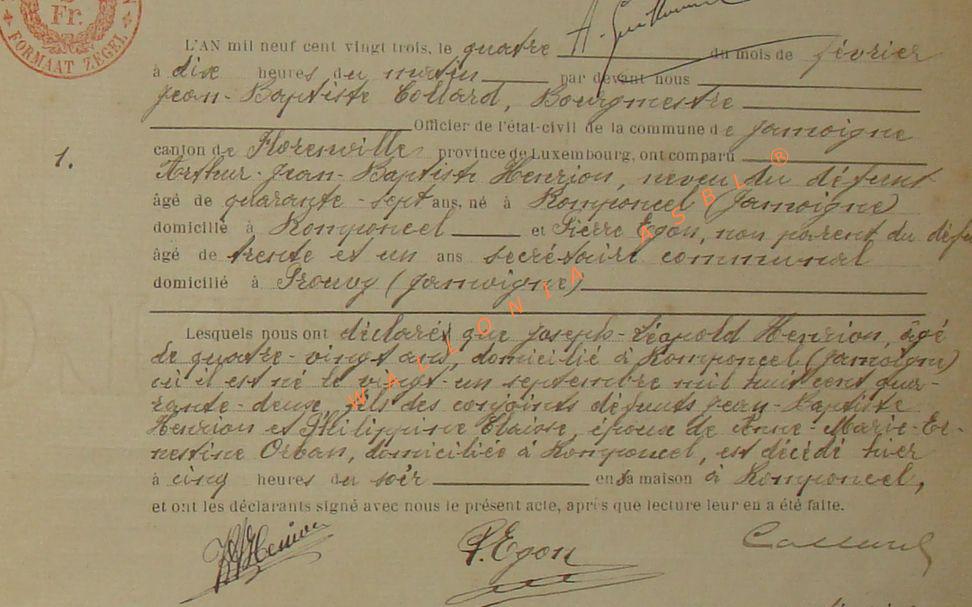 Fr.
FORMAAT ZEGEL
A. Guillaume
L'AN mil neuf cent vingt trois, le quatre du mois de février
à dix heures du matin par devant nous
Jean-Baptiste Collard, Bourgmestre
Officier de l'état-civil de la commune de Jamoigne
1.
canton de Florenville province de Luxembourg, ont comparu
Arthur-Jean-Baptiste Henrion, neveu du défunt
âgé de quarante-sept ans, né à Romponcel (Jamoigne)
domicilié à Romponcel et Pierre Egon, non parent du défu
âgé de trente et un ans secrétaire communal
domicilié à Prouvy (Jamoigne)
Lesquels nous ont déclaré que Joseph-Léopold Henrion, âgé
de quatre-vingt ans, domicilié à Romponcel (Jamoigne)
où il est né le vingt-un septembre mil huit cent qua-
rante-deux, fils des conjoints défunts Jean-Baptiste
Henrion et Philippine Claisse, époux de Anne-Marie-Er-
nestine Orban, domiciliée à Romponcel, est décédé hier
à cinq heures du soir en sa maison à Romponcel,
et ont les déclarants signé avec nous le présent acte, après que lecture leur en a été faite.
Henrion P. Egon Collard
WALLONIA ASBL ®